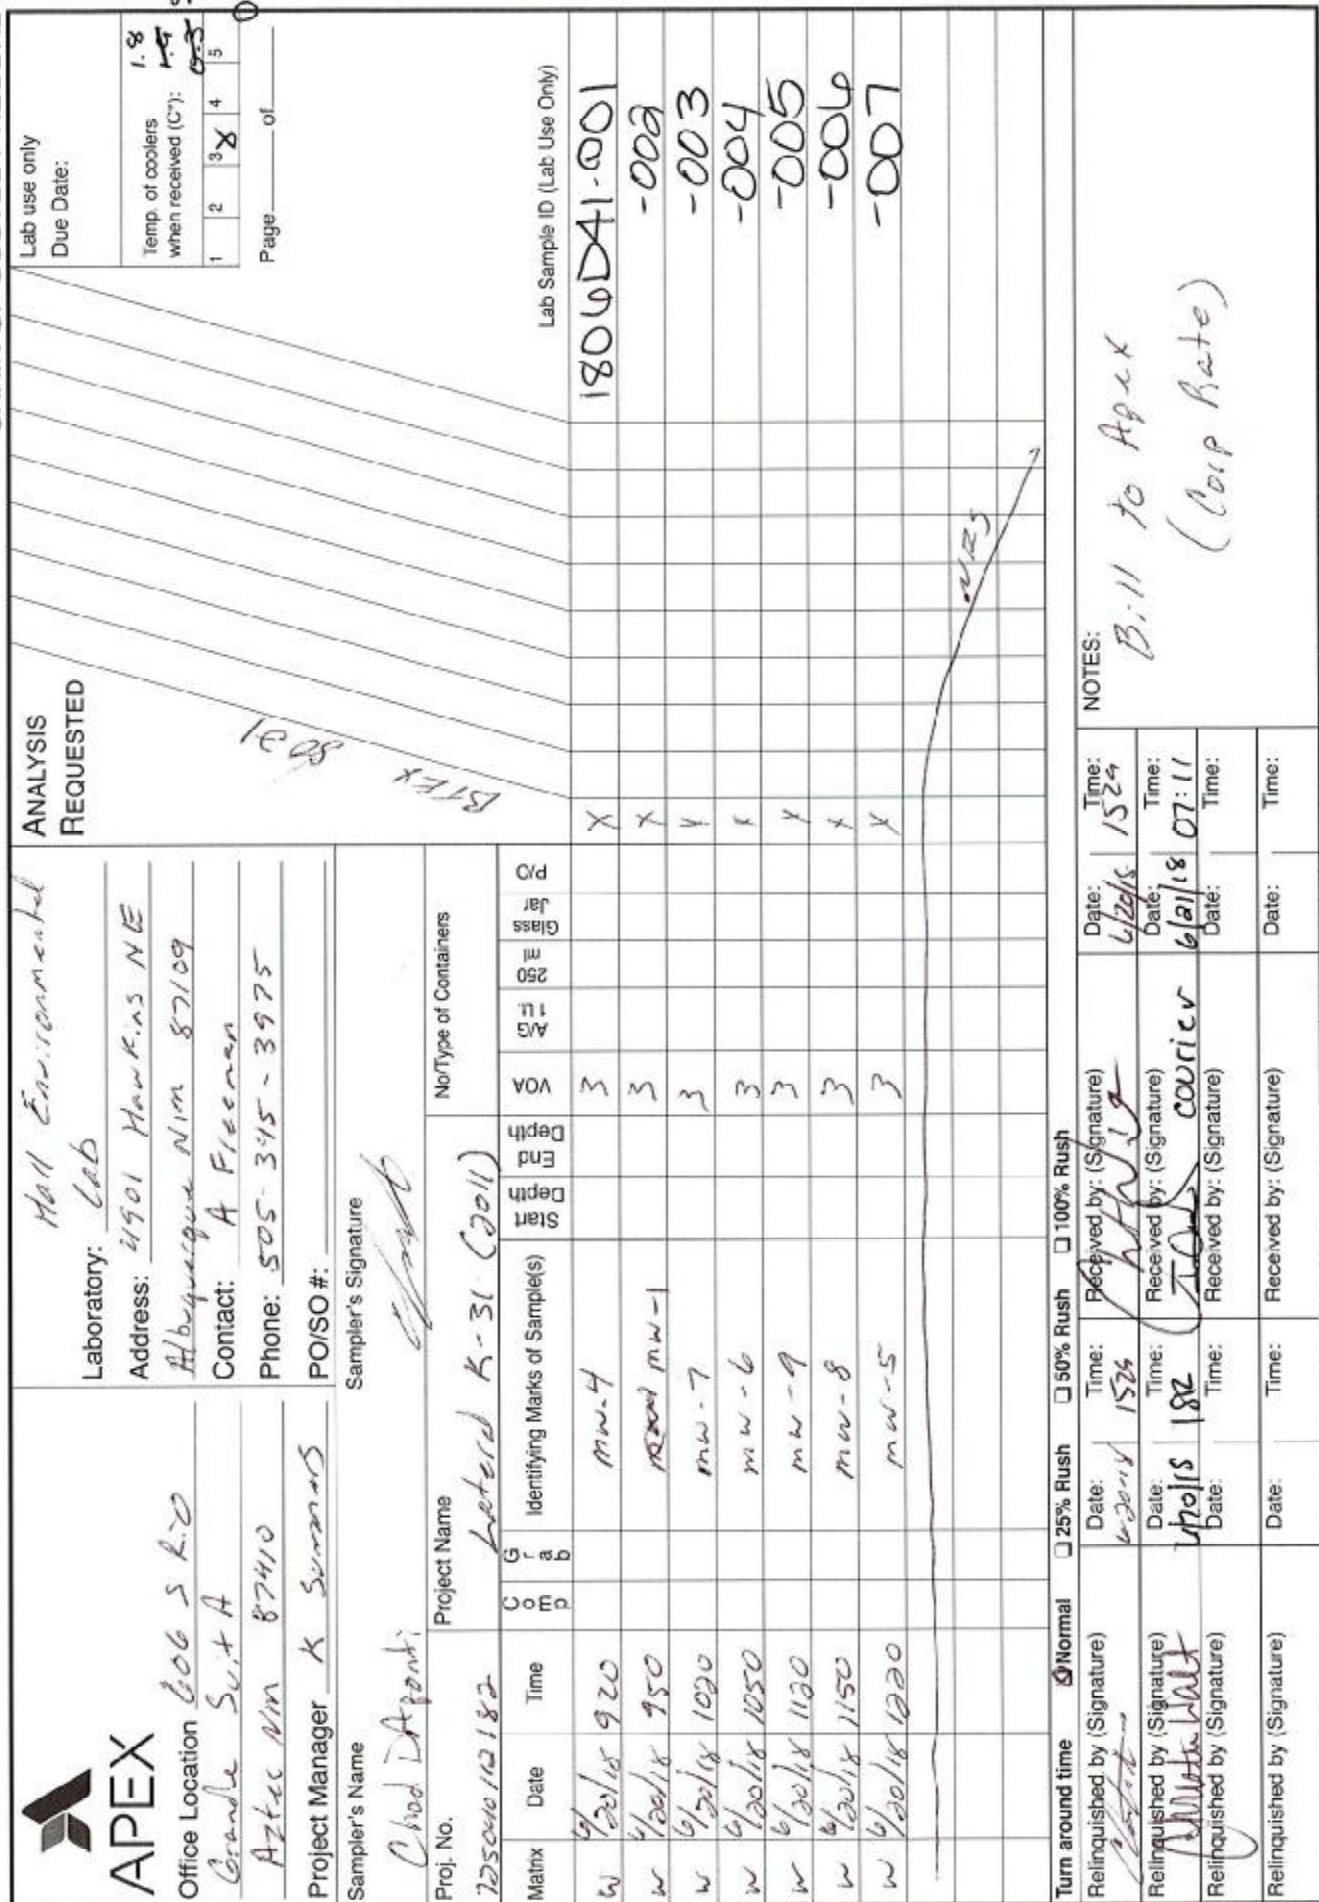 APEX
Office Location 606 S Rio
Grande Suit A
Aztec NM 87410
Project Manager K Summers
Hall Environmental
Laboratory: Lab
Address: 4901 Hawkins NE
Albuquerque NM 87109
Contact: A Freeman
Phone: 505-345-3975
PO/SO #:
ANALYSIS
REQUESTED
BTEX 8021
Lab use only
Due Date:
Temp. of coolers
when received (C°): 1.8
1 2 3 X 4 5
Page of
Sampler's Name
Chad DAponti
Sampler's Signature
Proj. No.
Project Name
Lateral K-31 (2011)
No/Type of Containers
Matrix Date Time Comp Grab Identifying Marks of Sample(s) Start Depth End Depth VOA A/G 1 Lt. 250 ml Glass Jar P/O
Lab Sample ID (Lab Use Only)
W 6/20/18 920 MW-4 3 X 1806D41-001
W 6/20/18 950 MW-1 3 X -002
W 6/20/18 1020 MW-7 3 X -003
W 6/20/18 1050 MW-6 3 X -004
W 6/20/18 1120 MW-9 3 X -005
W 6/20/18 1150 MW-8 3 X -006
W 6/20/18 1220 MW-5 3 X -007
Turn around time Normal 25% Rush 50% Rush 100% Rush
Relinquished by (Signature) Date: Time: Received by: (Signature) Date: Time:
6/20/18 1524
Relinquished by (Signature) Date: Time: Received by: (Signature) Date: Time:
courier 6/21/18 07:11
Relinquished by (Signature) Date: Time: Received by: (Signature) Date: Time:
Relinquished by (Signature) Date: Time: Received by: (Signature) Date: Time:
NOTES:
Bill to Apex
(Corp Rate)